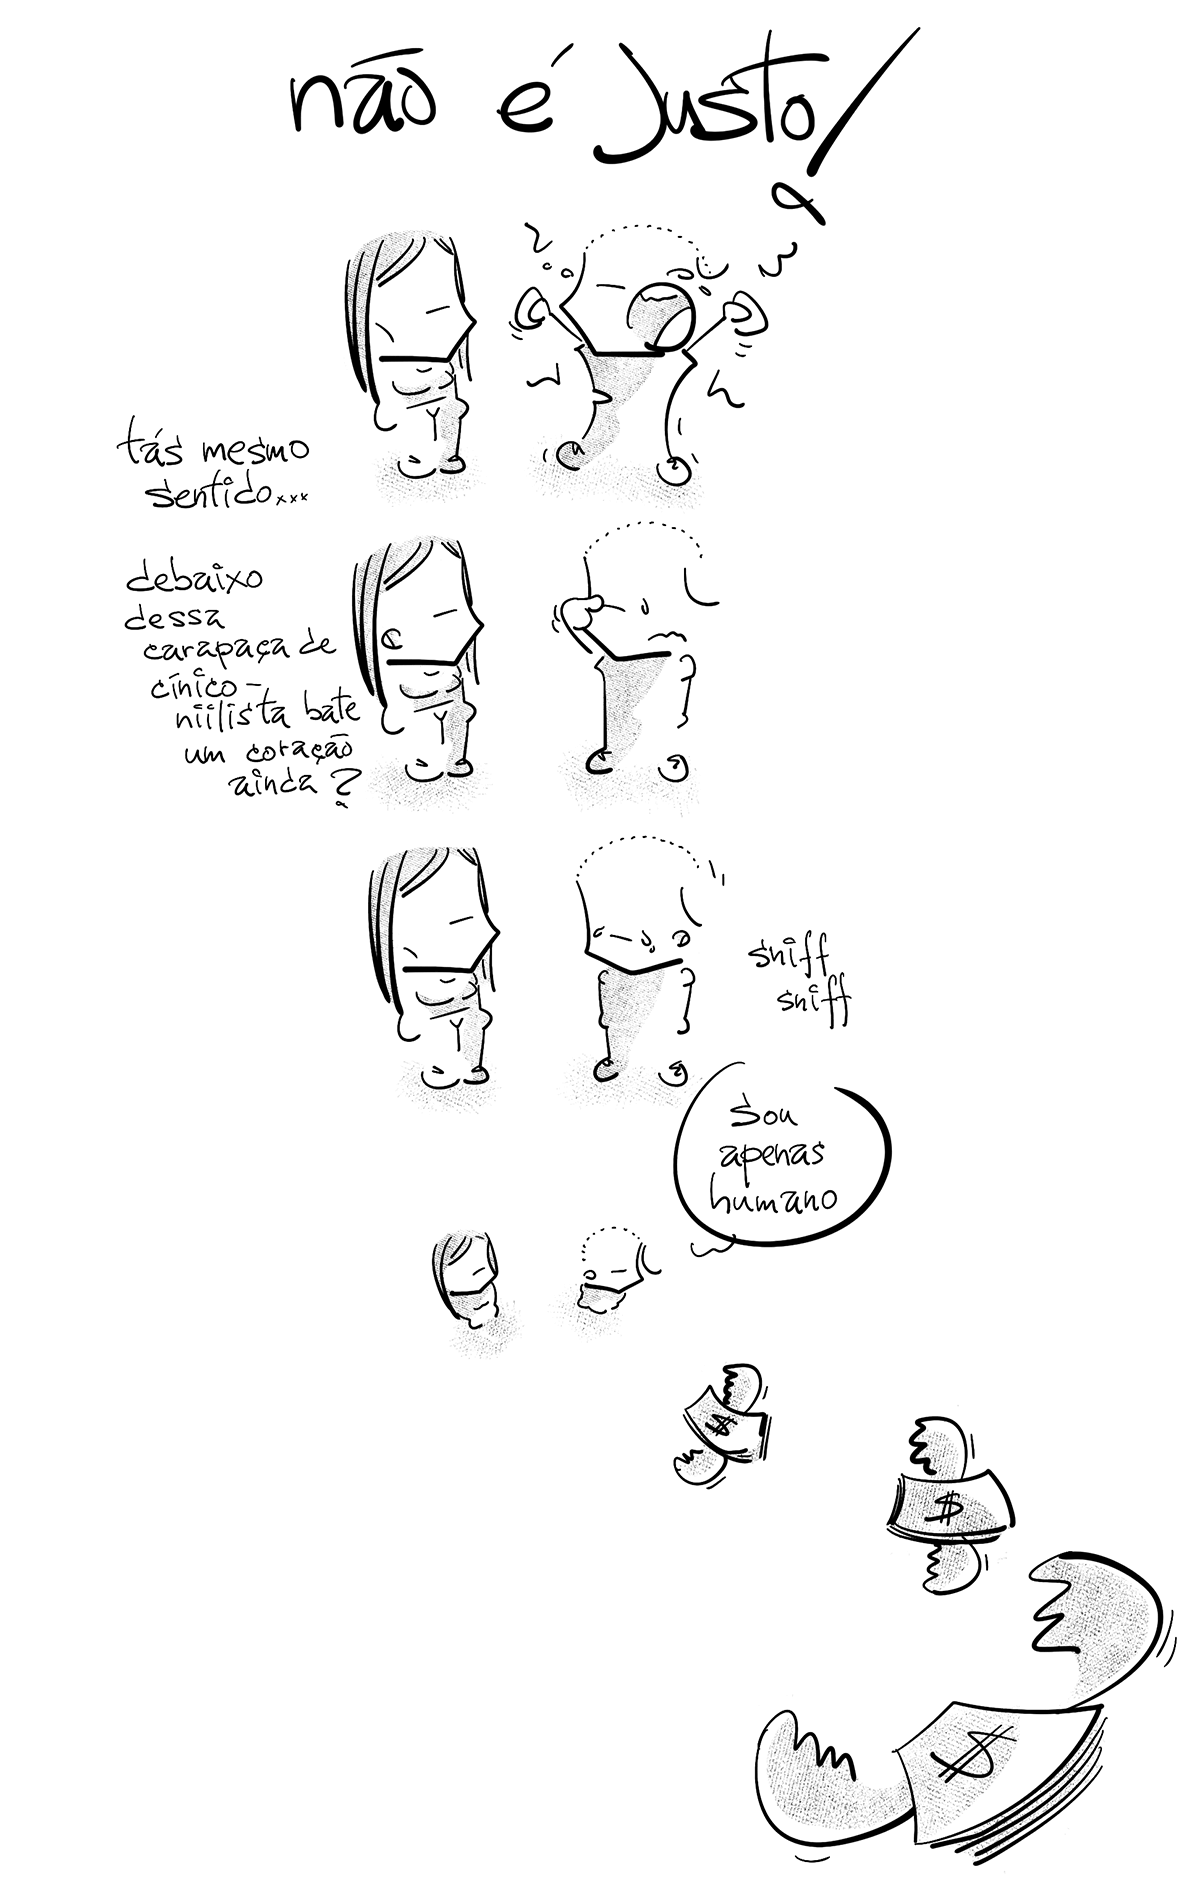 não é justo!
tás mesmo
sentido...
debaixo
dessa
carapaça de
cínico-
niilista bate
um coração
ainda?
sniff
sniff
sou
apenas
humano
$
$
$